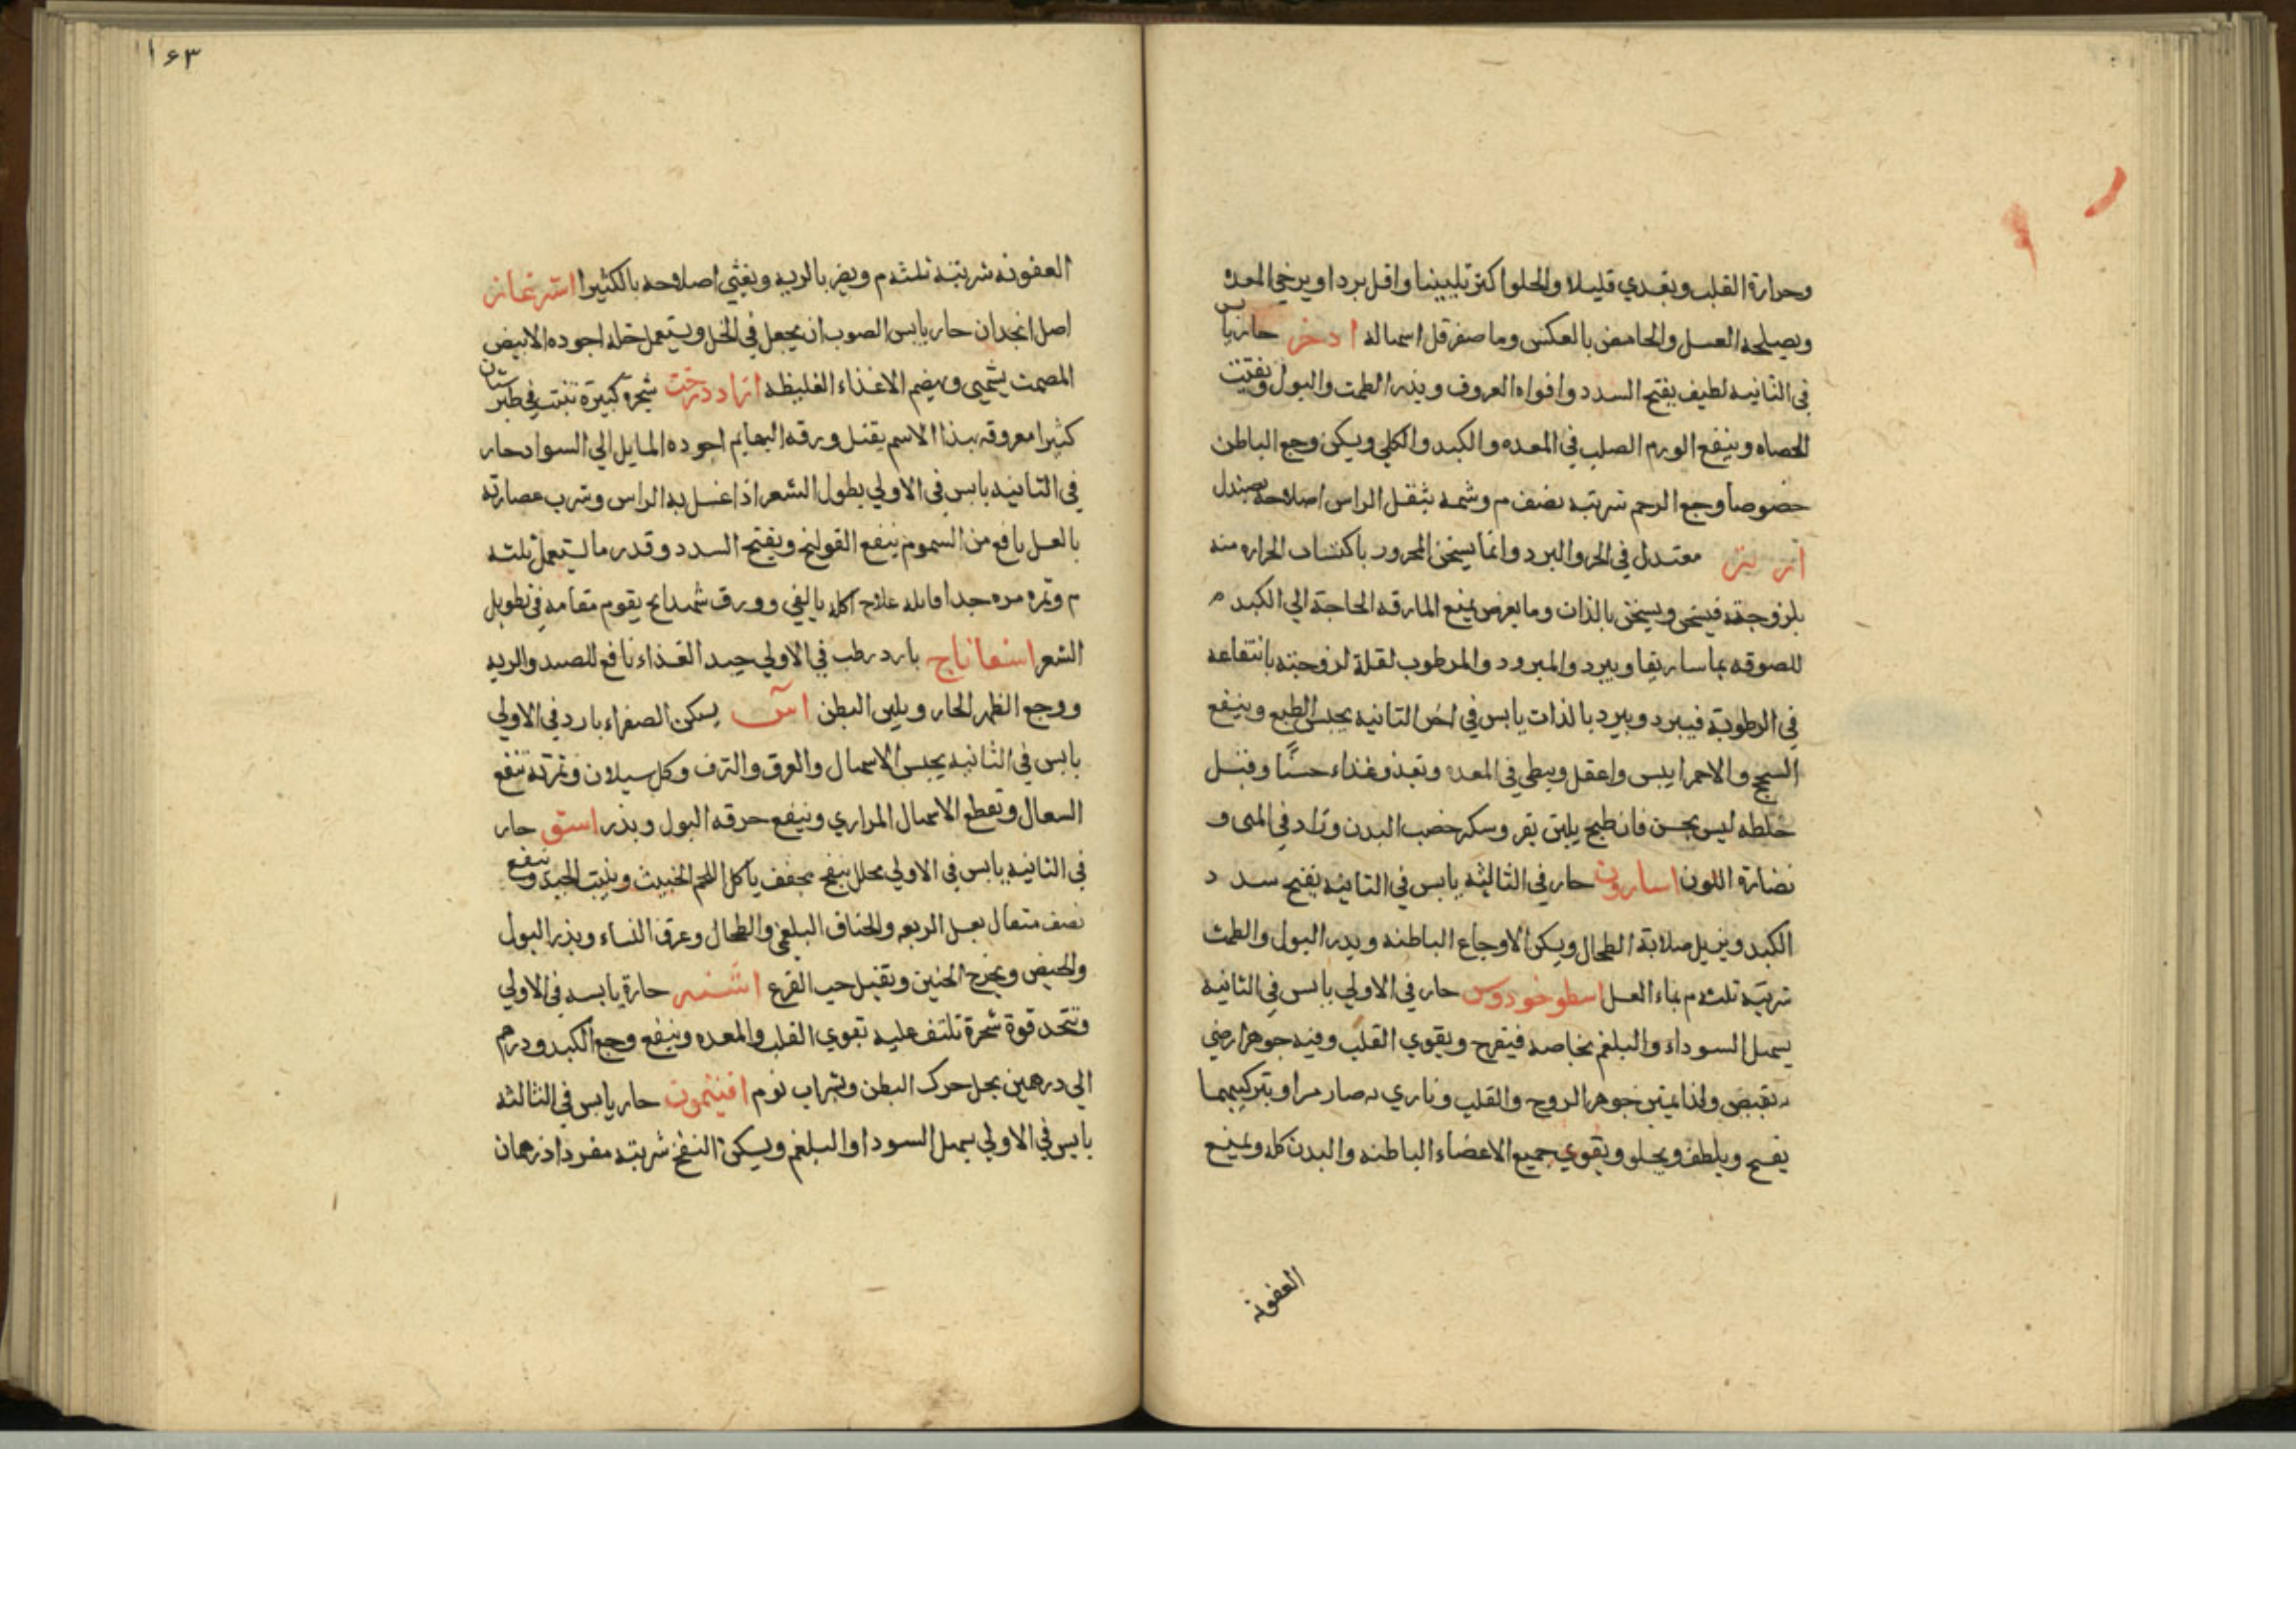 وحرارة القلب ويغدي قليلا والحلو اكثر تليينا واقل بردا ويرخي المعده
ويصلحه العسل والحامض بالعكس وما صغر قل اسهاله ادخر حار يابس
في الثانيه لطيف يفتح السدد وافواه العروق ويدر الطمت والبول ويفتت
الحصاه وينفع الورم الصلب في المعده والكبد والكلي ويسكن وجع الباطن
خصوصا وجع الرحم شربته نصف م وشمه يثقل الراس اصلاحه بصندل
ارز معتدل في الحر والبرد وانما يسخن المحرور باكتساب الحراره منه
بلزوجته فيسخن ويسخن بالذات وما يعرض يمنع المارقه الحاجة الي الكبد م
للصوقه بماساريقا ويبرد والمبرود والمرطوب لقلة لزوجته بانتفاعه
في الرطوبة فيبرد ويبرد بالذات يابس في اخر الثانيه يحبس الطبع وينفع
السحج والاحمر ايبس واعقل ويبطي في المعده وتغذو غذاء حسنًا وقيل
خلطه ليس بحسن فان طبخ بلبن بقر وسكر خصب البدن وزاد في المني و
نضارة اللون اسارون حار في الثالثه يابس في الثانيه يفتح سدد
الكبد ويزيل صلابة الطحال ويسكن الاوجاع الباطنه ويدر البول والطمث
شربته ثلثه م بماء العسل اسطوخودوس حار في الاولي يابس في الثانيه
يسهل السوداء والبلغم بخاصه فيفرح ويقوي القلب وفيه جوهر ارضي
به يقبض ولذا يمتين جوهر الروح والقلب وناري به صار مرا وبتركيبهما
يفتح ويلطف ويجلو ويقوي جميع الاعضاء الباطنه والبدن كله ويمنع
العفونه
١٦٣
العفونه شربته ثلثه م ويضر بالريه ويغثي اصلاحه بالكثيرا اشترغاز
اصل انجدان حار يابس الصوب ان يجعل في الخل ويستعمل خله اجوده الابيض
المصمت يشهي ويهضم الاغذاء الغليظه ازاددرخت شجرة كبيرة تنبت في طبرستان
كثيرا معروفه بهذا الاسم يقتل ورقه البهايم اجوده المايل الي السواد حار
في الثانيه يابس في الاولي يطول الشعر اذا غسل به الراس وشرب عصارته
بالعسل نافع من السموم ينفع القولنج ويفتح السدد وقدر ما يستعمل ثلثه
م وثمره مره جدا قاتله علاج اكله بالقي وورق شهدانج يقوم مقامه في تطويل
الشعر اسفاناج بارد رطب في الاولي جيد الغذاء نافع للصدر والريه
ووجع الظهر الحار ويلين البطن آس يسكن الصفراء بارد في الاولي
يابس في الثانيه يحبس الاسهال والعرق والنزف وكل سيلان وثمرته تنفع
السعال وتقطع الاسهال المراري وينفع حرقه البول ويدر اسق حار
في الثانيه يابس في الاولي محلل ينضج يجفف ياكل اللحم الخبيث وينبت الجيد وينفع
نصف مثقال بعسل الربو والخناق البلغمي والطحال وعرق النساء ويدر البول
والحيض ويخرج الجنين ويقتل حب القرع اشنه حارة يابسه في الاولي
وتتخد قوة شجرة تلتف عليه تقوي القلب والمعده وينفع وجع الكبد ودرهم
الي درهمين بخل حرك البطن وبشراب نوم افتيمون حار يابس في الثالثه
يابس في الاولي يسهل السودا والبلغم ويسكن النفخ شربته مفردا درهمان